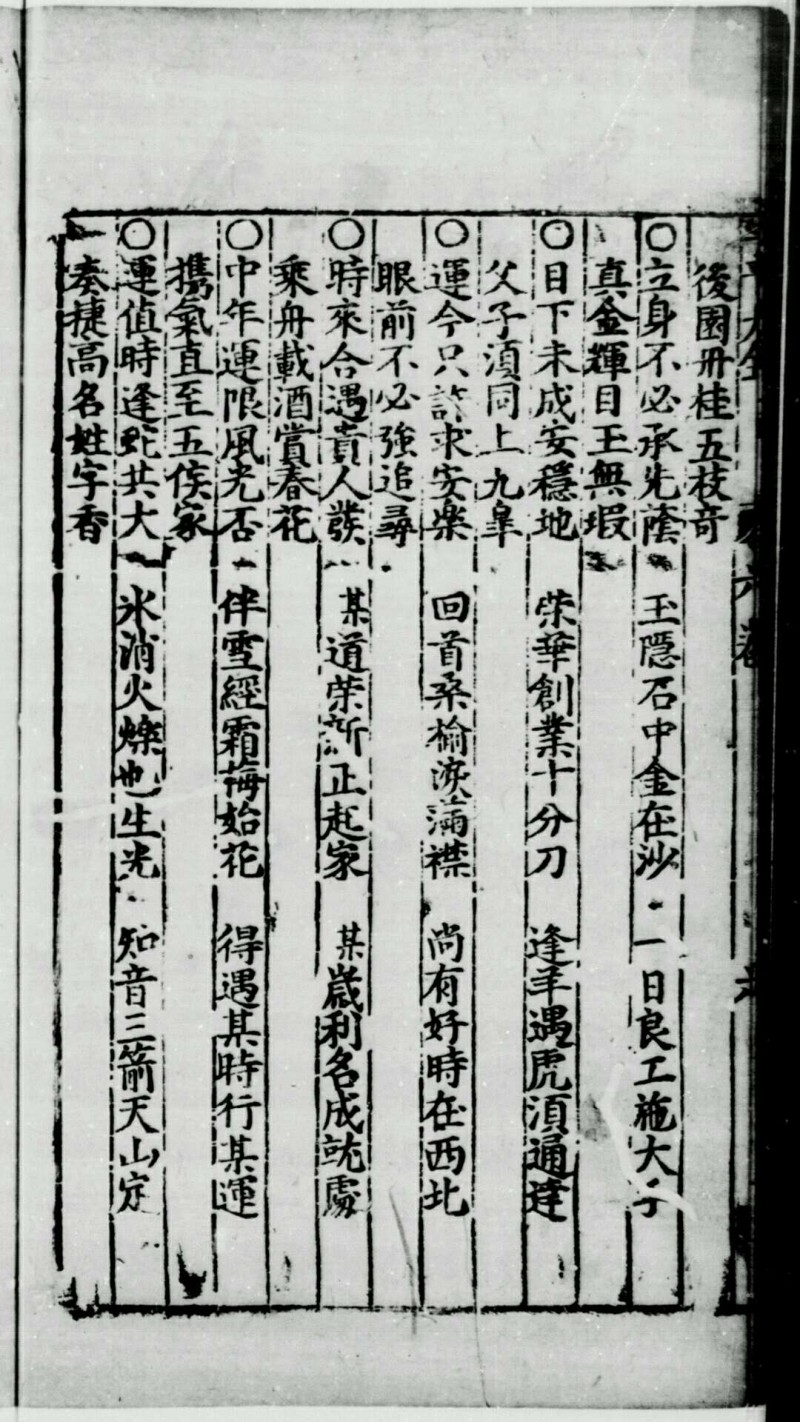 後園丹桂五枝奇
〇立身不必承先蔭 玉隱石中金在沙 一日良工施大手
真金輝日玉無瑕
〇目下未成安穩地 荣華創業十分刀 逢羊遇虎須通達
父子須同上九臯
〇運今只許求安樂 回首桑榆淚滿襟 尚有好時在西北
眼前不必強追尋
〇時來合遇貴人發 某道荣新正起家 某歲利名成就處
乘舟載酒賞春花
〇中年運限風光否 伴雪經霜梅始花 得遇某時行某運
携氣直至五侯家
〇運值時逢蛇共大 氷消火燥也生光 知音三箭天山定
奏捷高名姓字香